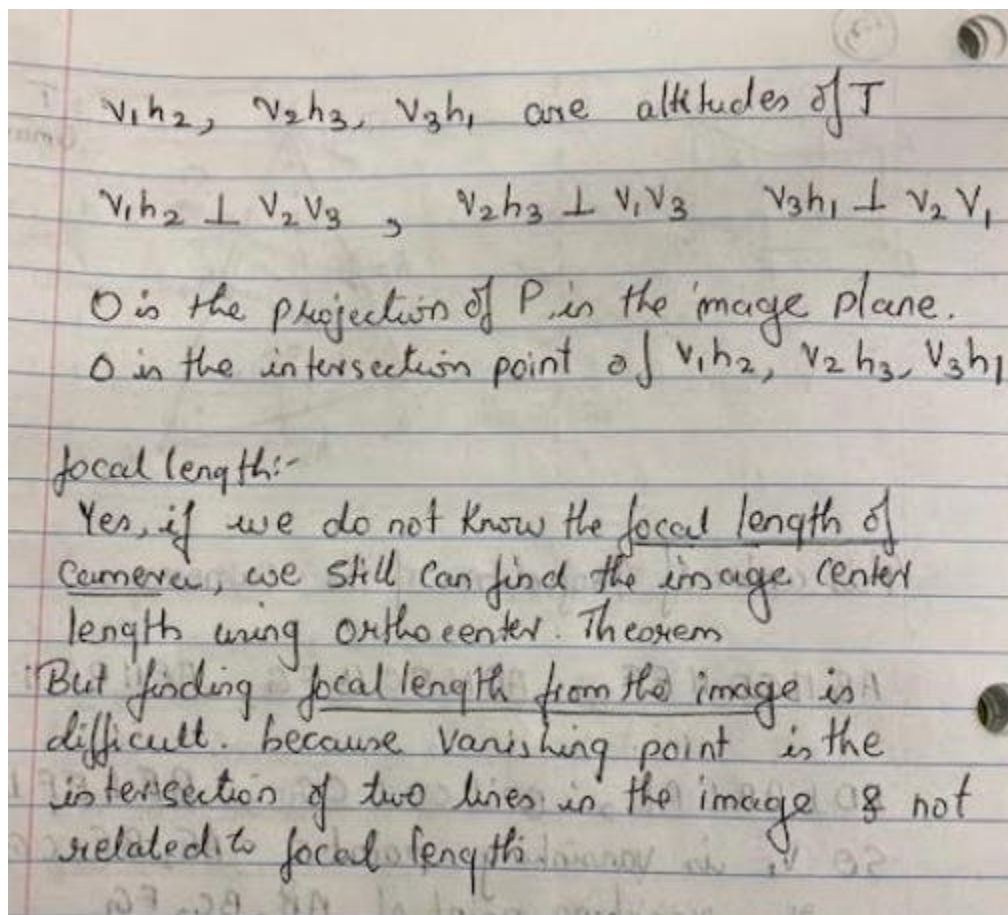 v₁h₂, v₂h₃, v₃h₁ are altitudes of T
v₁h₂ ⊥ v₂v₃, v₂h₃ ⊥ v₁v₃ v₃h₁ ⊥ v₂v₁
O is the projection of P, in the image plane.
O is the intersection point of v₁h₂, v₂h₃, v₃h₁
focal length:-
Yes, if we do not know the focal length of
camera, we still can find the image center
length using orthocenter. Theorem
But finding focal length from the image is
difficult. because vanishing point is the
intersection of two lines in the image & not
related to focal length